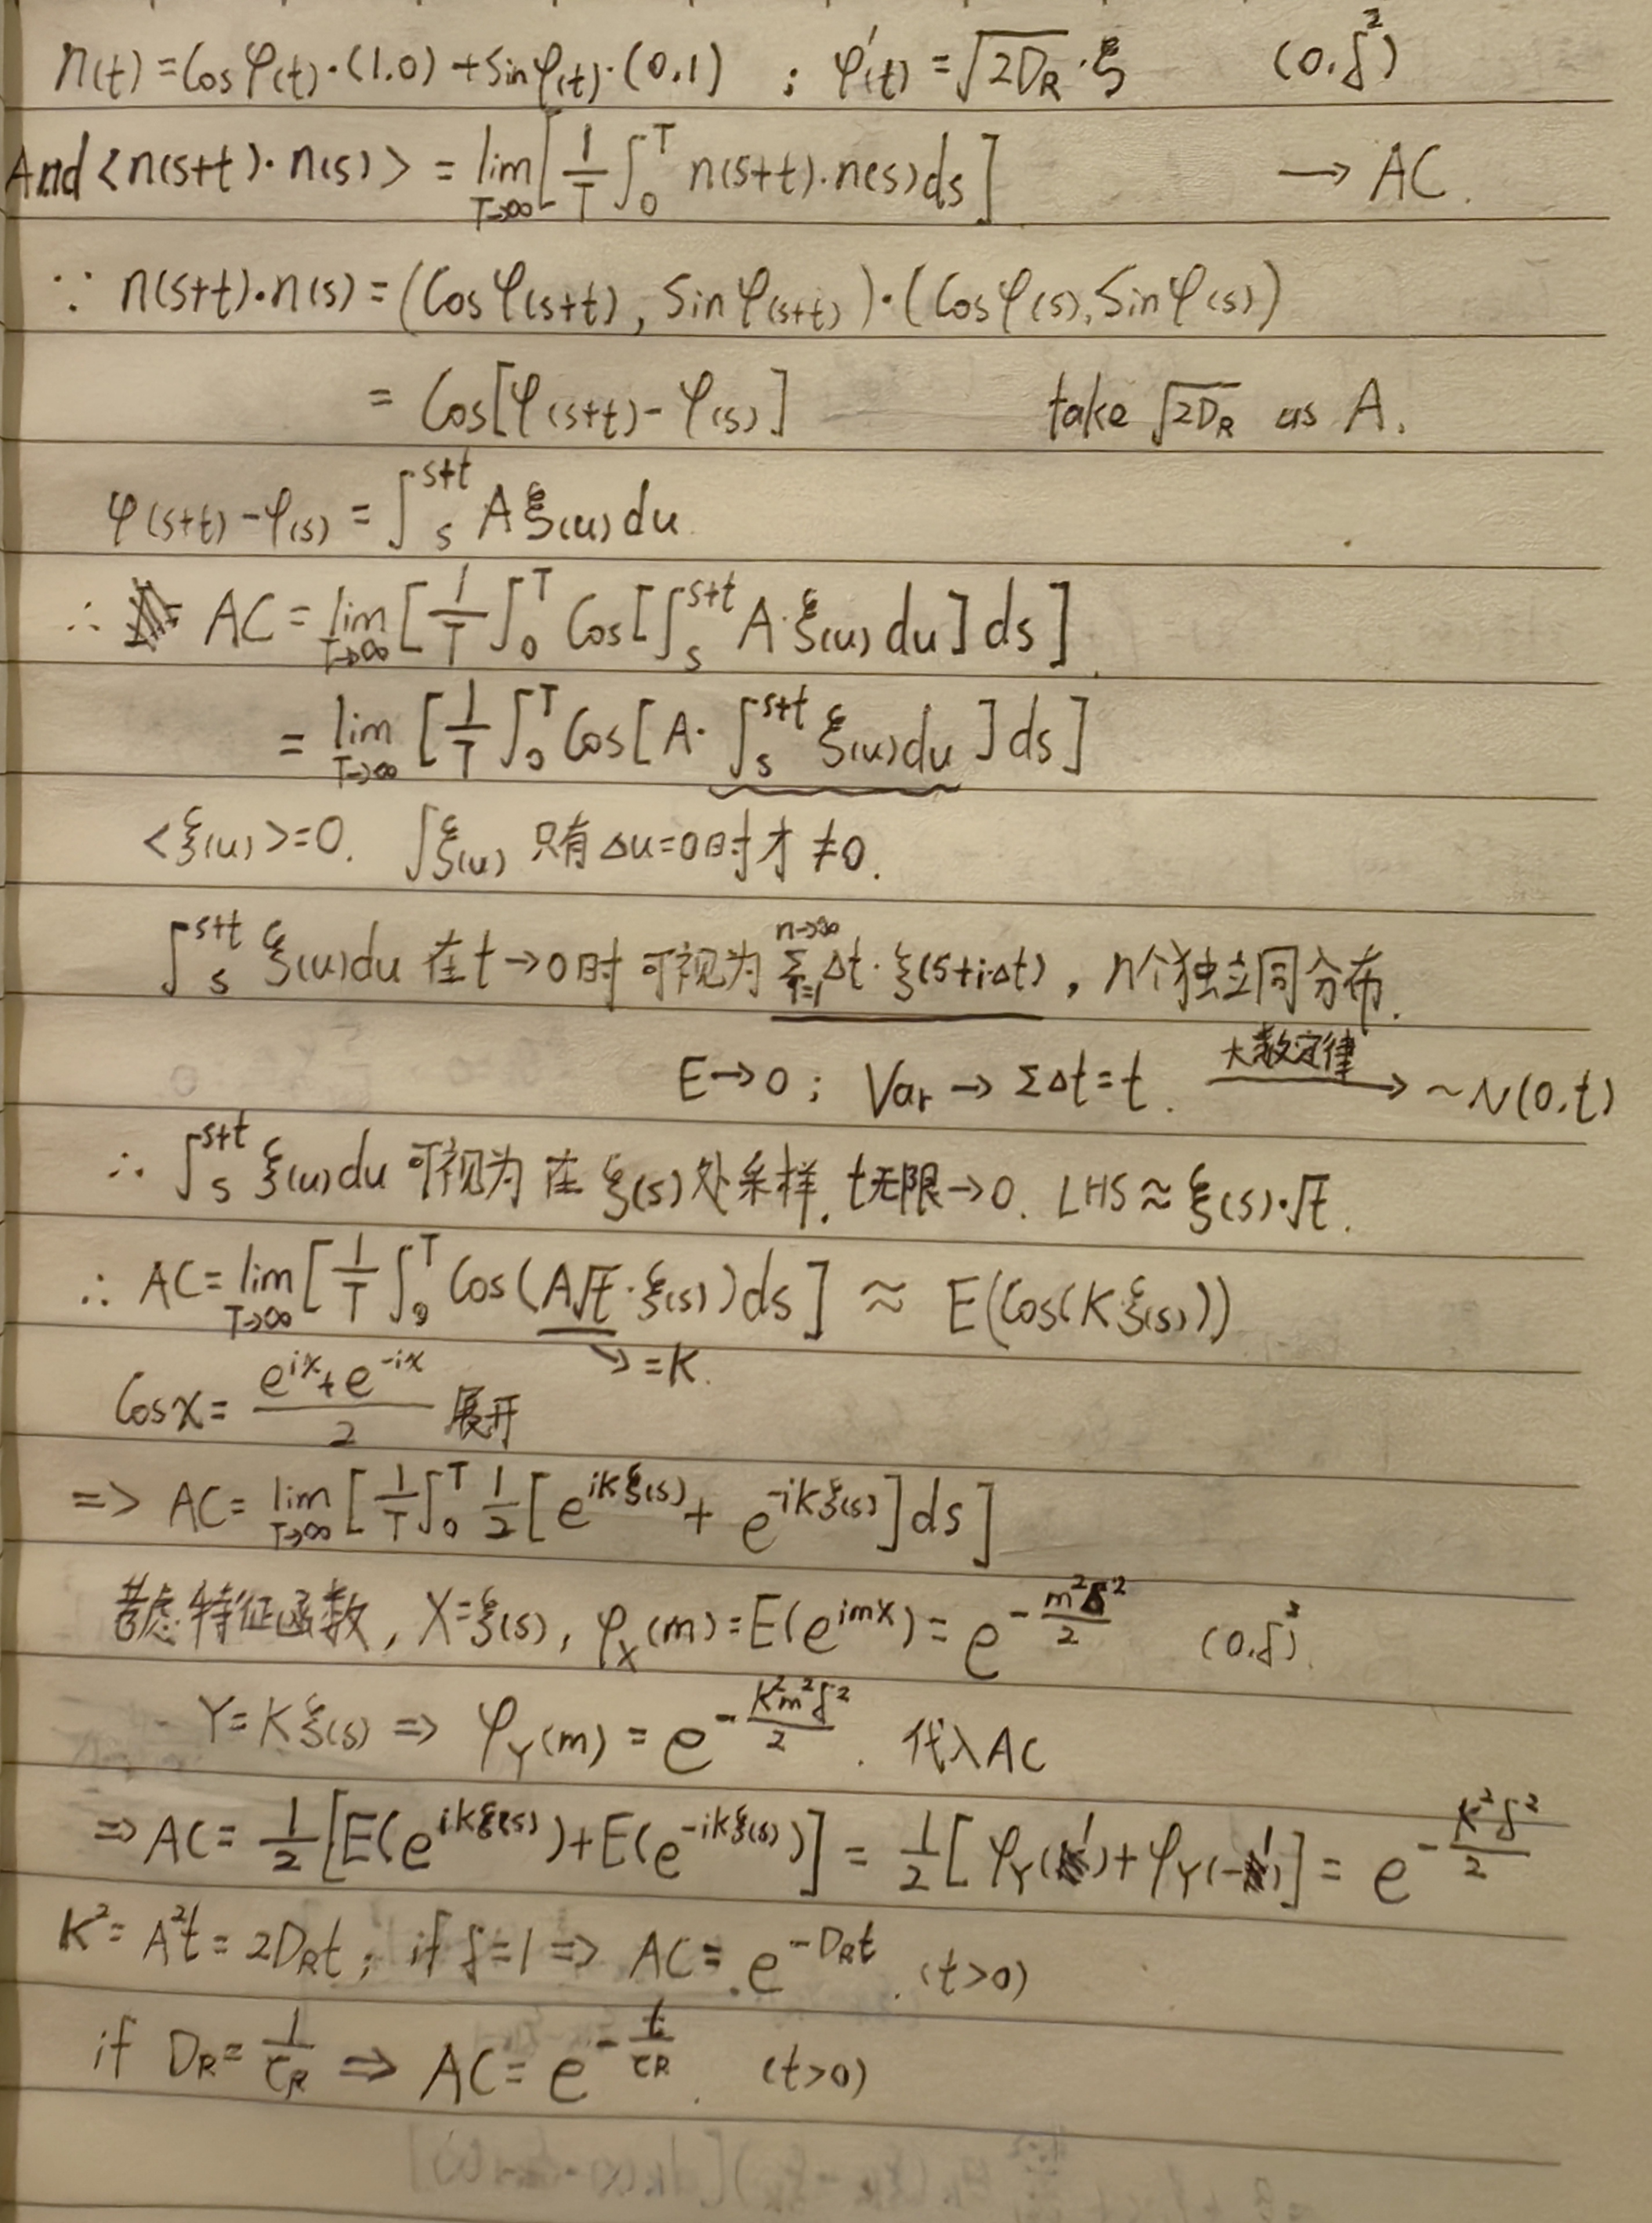 n(t) = Cos φ(t)·(1.0) + Sin φ(t)·(0.1) ; φ'(t) = √2D_R · ξ (0.δ²)
And <n(s+t)·n(s)> = lim T→∞ [1/T ∫₀^T n(s+t)·n(s)ds] → AC.
∵ n(s+t)·n(s) = (Cos φ(s+t), Sin φ(s+t))·(Cos φ(s), Sin φ(s))
= Cos[φ(s+t) - φ(s)] take √2D_R as A.
φ(s+t) - φ(s) = ∫_s^{s+t} A ξ(u) du
∴ AC = lim T→∞ [1/T ∫₀^T Cos[∫_s^{s+t} A·ξ(u) du] ds]
= lim T→∞ [1/T ∫₀^T Cos[A· ∫_s^{s+t} ξ(u)du] ds]
<ξ(u)>=0. ∫ξ(u) 只有 Δu=0时才≠0.
∫_s^{s+t} ξ(u)du 在t→0时 可视为 Σ_{i=1}^{n→∞} Δt·ξ(s+i·Δt), n个独立同分布.
E→0; Var → ΣΔt=t. 大数定律 → ~N(0,t)
∴ ∫_s^{s+t} ξ(u)du 可视为 在 ξ(s) 处采样. t无限→0. LHS ≈ ξ(s)·√t.
∴ AC = lim T→∞ [1/T ∫₀^T Cos(A√t·ξ(s))ds] ≈ E(Cos(K·ξ(s)))
↘ =K.
Cosx = (e^{ix}+e^{-ix})/2 展开
=> AC = lim T→∞ [1/T ∫₀^T 1/2 [e^{ikξ(s)} + e^{-ikξ(s)}] ds]
考虑特征函数, X=ξ(s), φ_X(m) = E(e^{imX}) = e^{-m²δ²/2} (0.δ²).
Y=Kξ(s) => φ_Y(m) = e^{-K²m²δ²/2}. 代入AC
=> AC = 1/2 [E(e^{ikξ(s)}) + E(e^{-ikξ(s)})] = 1/2 [φ_Y(1) + φ_Y(-1)] = e^{-K²δ²/2}
K² = A²t = 2D_Rt; if δ=1 => AC = e^{-D_Rt}. (t>0)
if D_R = 1/τ_R => AC = e^{-t/τ_R}. (t>0)